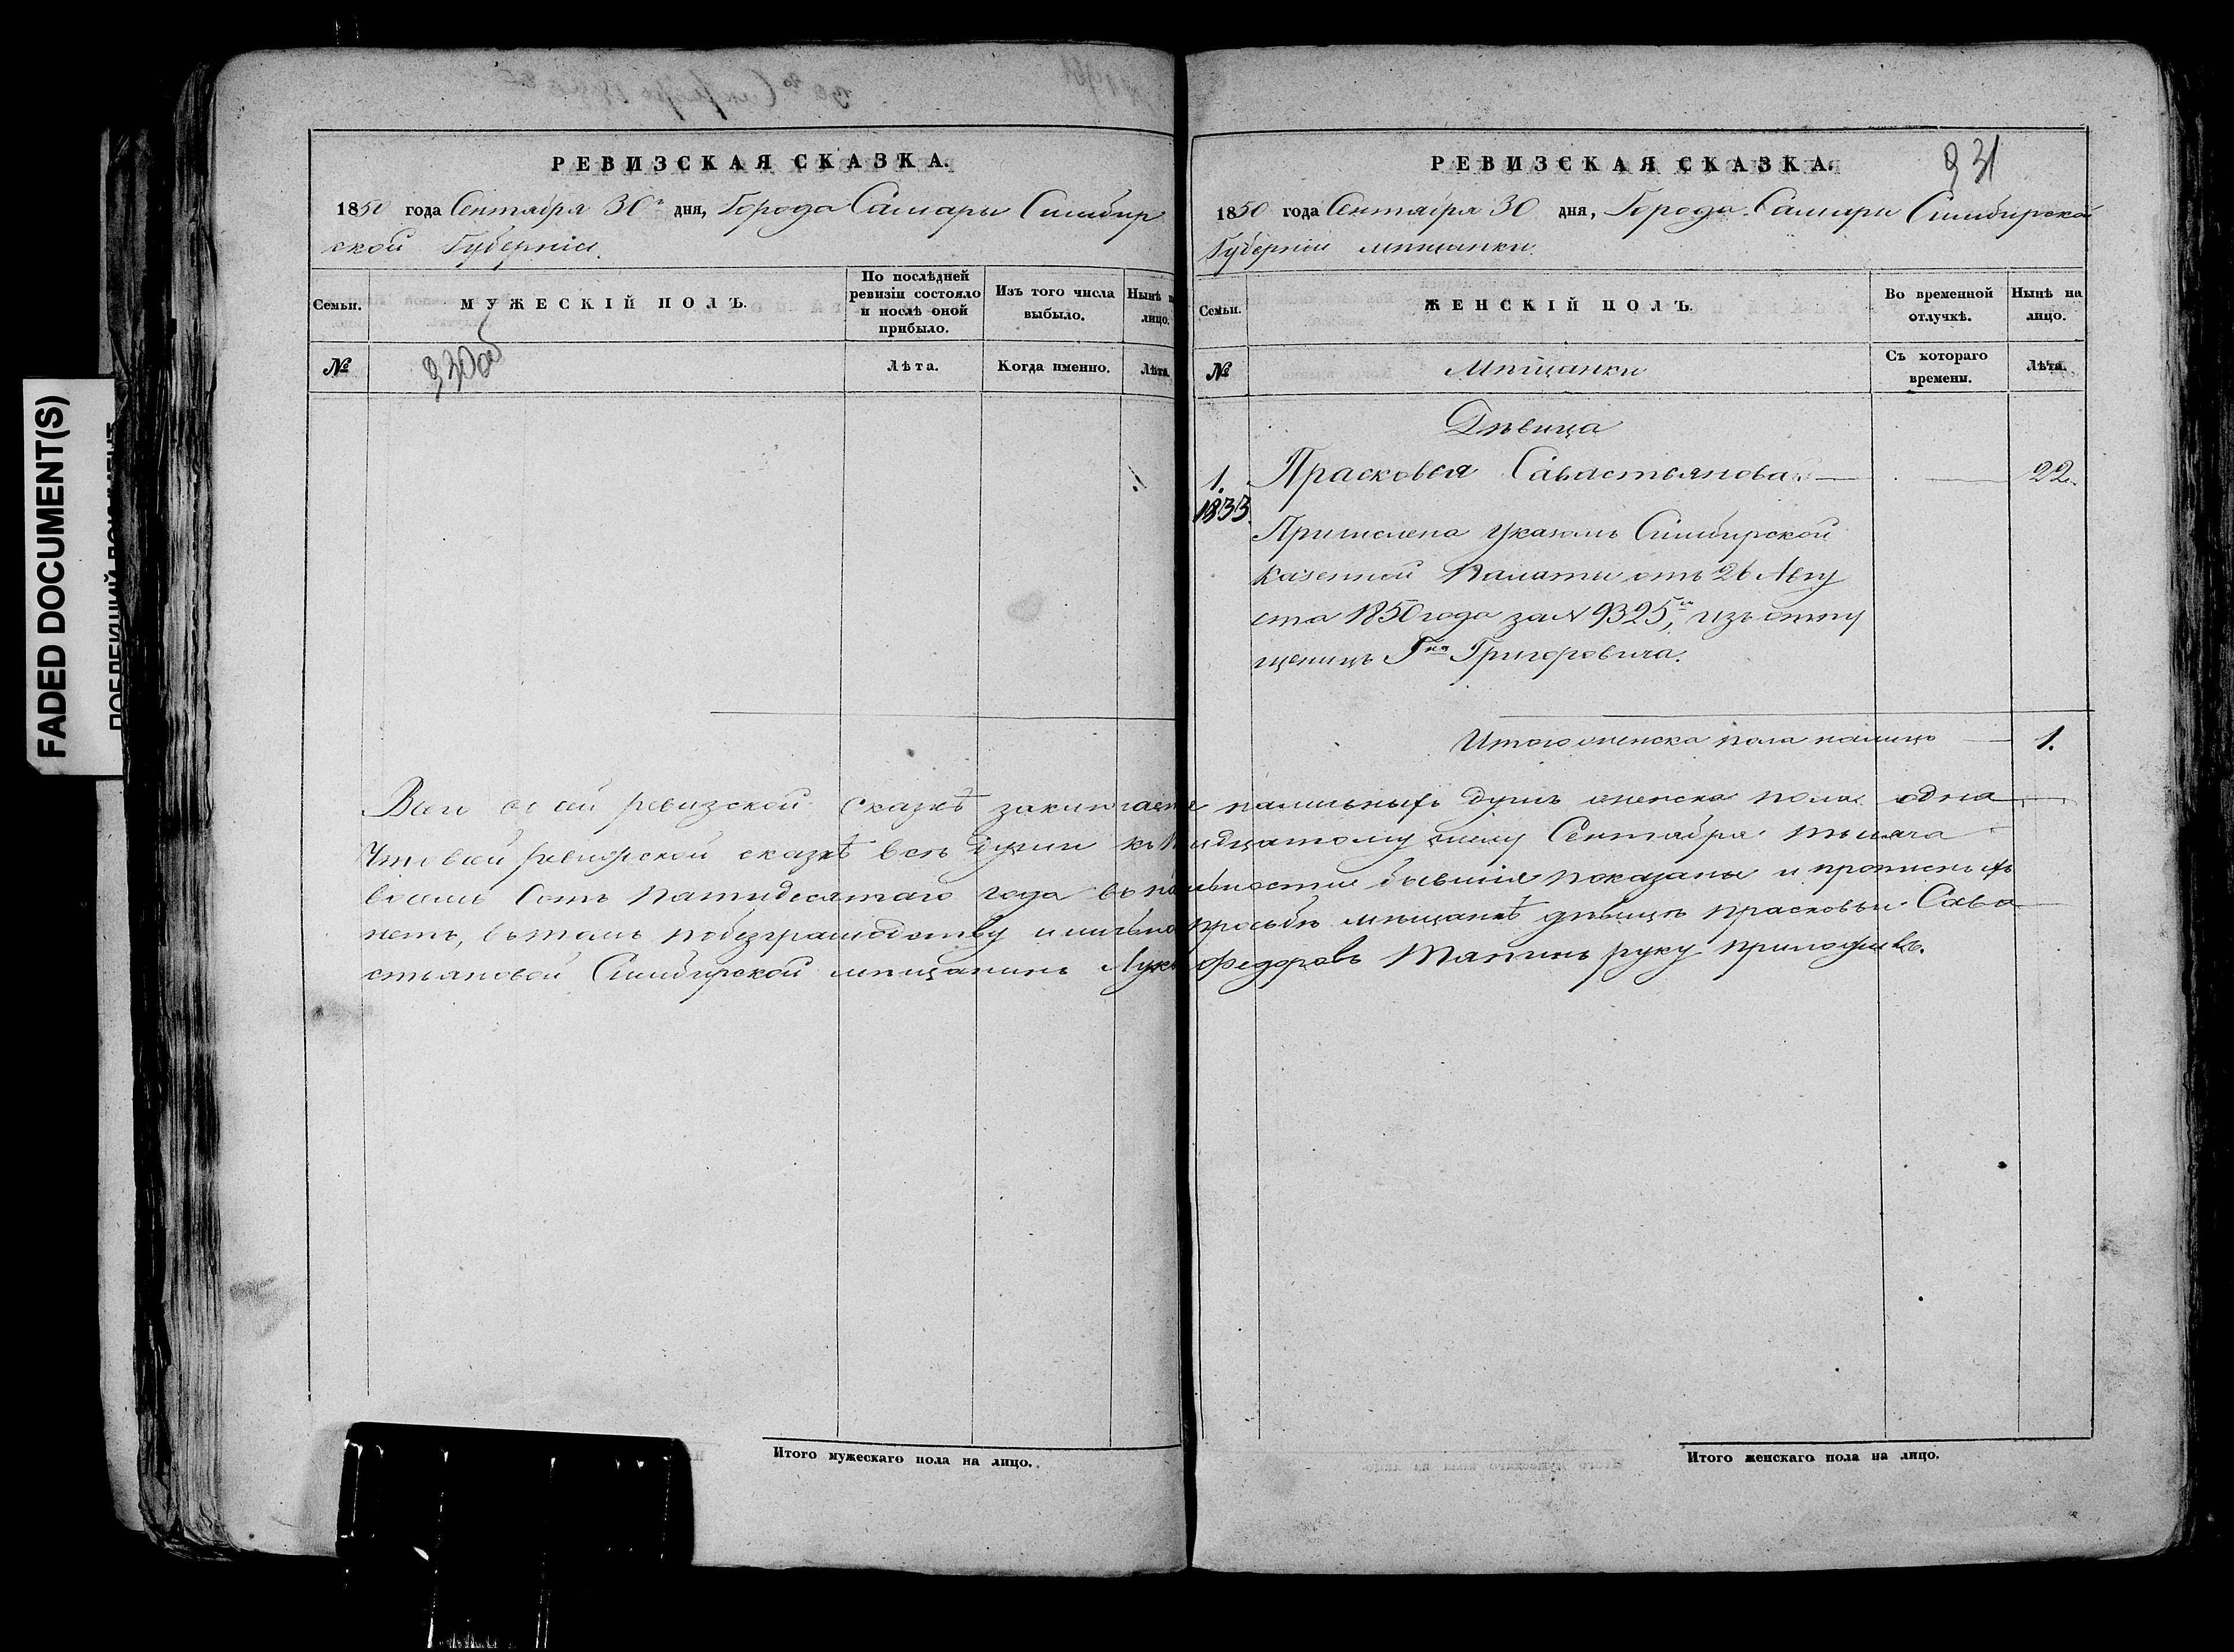 FADED DOCUMENT(S)
РЕВИЗСКАЯ СКАЗКА.
1850 года Сентября 30го дня, Города Самары Симбир
ской Губерніи.
Семьи.
МУЖЕСКІЙ ПОЛЪ.
По послѣдней
ревизіи состояло
и послѣ оной
прибыло.
Изъ того числа
выбыло.
Нынѣ
лицо.
№
930об
Лѣта.
Когда именно.
Лѣта.
РЕВИЗСКАЯ СКАЗКА.
931
1850 года Сентября 30 дня, Города Самары Симбирской
Губерніи мѣщанки.
Семьи.
ЖЕНСКІЙ ПОЛЪ.
Во временной
отлучкѣ.
Нынѣ на
лицо.
№
Мѣщанки
Съ котораго
времени.
Лѣта.
Дѣвица
1. Прасковья Савастьянова. 22.
1833.
Причислена Указомъ Симбирской
Казенной Палаты отъ 26 Авгу
ста 1850 года за № 9325м, изъ отпу
щеницъ Гна Григоровича.
Итого женска пола налицо 1.
Всего въ сей ревизской Сказкѣ заключается наличныхъ душъ женска пола одна
Что въ сей ревизской сказкѣ всѣ души къ тридцатому числу Сентября тысяча
восемь сотъ пятидесятаго года въ наличности бывшія показаны и прописныхъ
нетъ, въ томъ по безграмотству и личной просьбѣ мѣщанкѣ дѣвицѣ Прасковьи Сава
стьяновой Симбирской мѣщанинъ Лука Федоровъ руку приложилъ.
Итого мужескаго пола на лицо.
Итого женскаго пола на лицо.